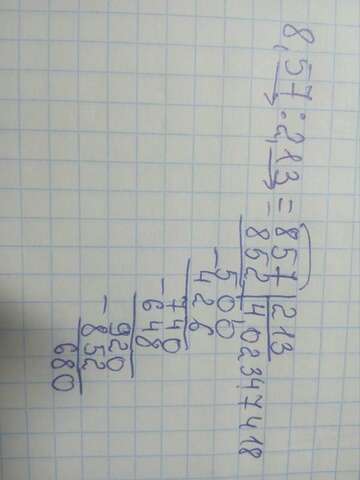 8,57:2,13=857|213
-852|4,02347418
500
-426
740
-648
920
-852
680